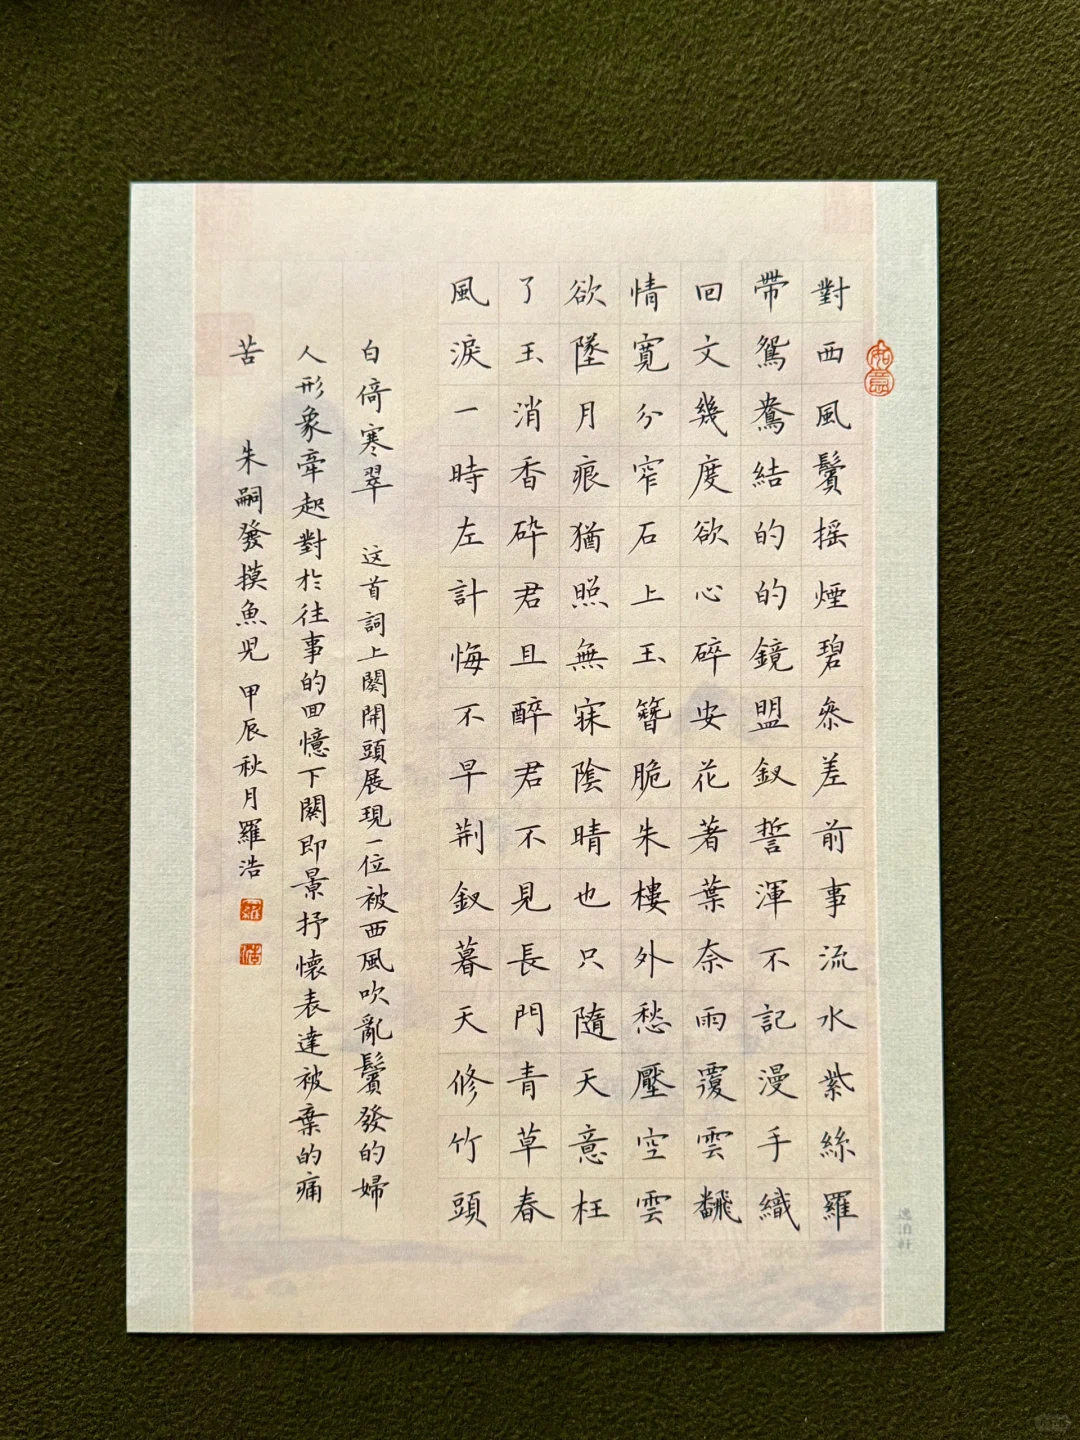 對西風鬢搖煙碧叅差前事流水紫絲羅
帶鴛鴦結的的鏡盟釵誓渾不記漫手織
回文幾度欲心碎安花著葉奈雨覆雲飜
情寬分窄石上玉簪脆朱樓外愁壓空雲
欲墜月痕猶照無寐陰晴也只隨天意枉
了玉消香砕君且醉君不見長門青草春
風淚一時左計悔不早荆釵暮天修竹頭
白倚寒翠 这首詞上闋開頭展現一位被西風吹亂鬢發的婦
人形象牽起對於往事的回憶下闋即景抒懷表達被棄的痛
苦 朱嗣發摸魚児 甲辰秋月羅浩
如意
羅
浩
逸泊軒